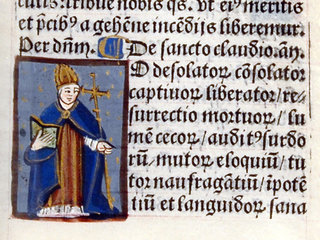 cuis: tribue nobis qs. vt eiꝰ meritis
et p̄cibꝰ a gehēne incēdijs liberemur.
Per dn̄m. De sancto claudio. añ.
O desolatoꝝ cōsolator
captiuoꝝ liberator / re⸗
surrectio mortuoꝝ / lu
mē cecoꝝ / auditꝰ surdo
rū / mutoꝝ eloquiū / tu
tor naufragātiū / īpotē
tiū et languidoꝝ sana